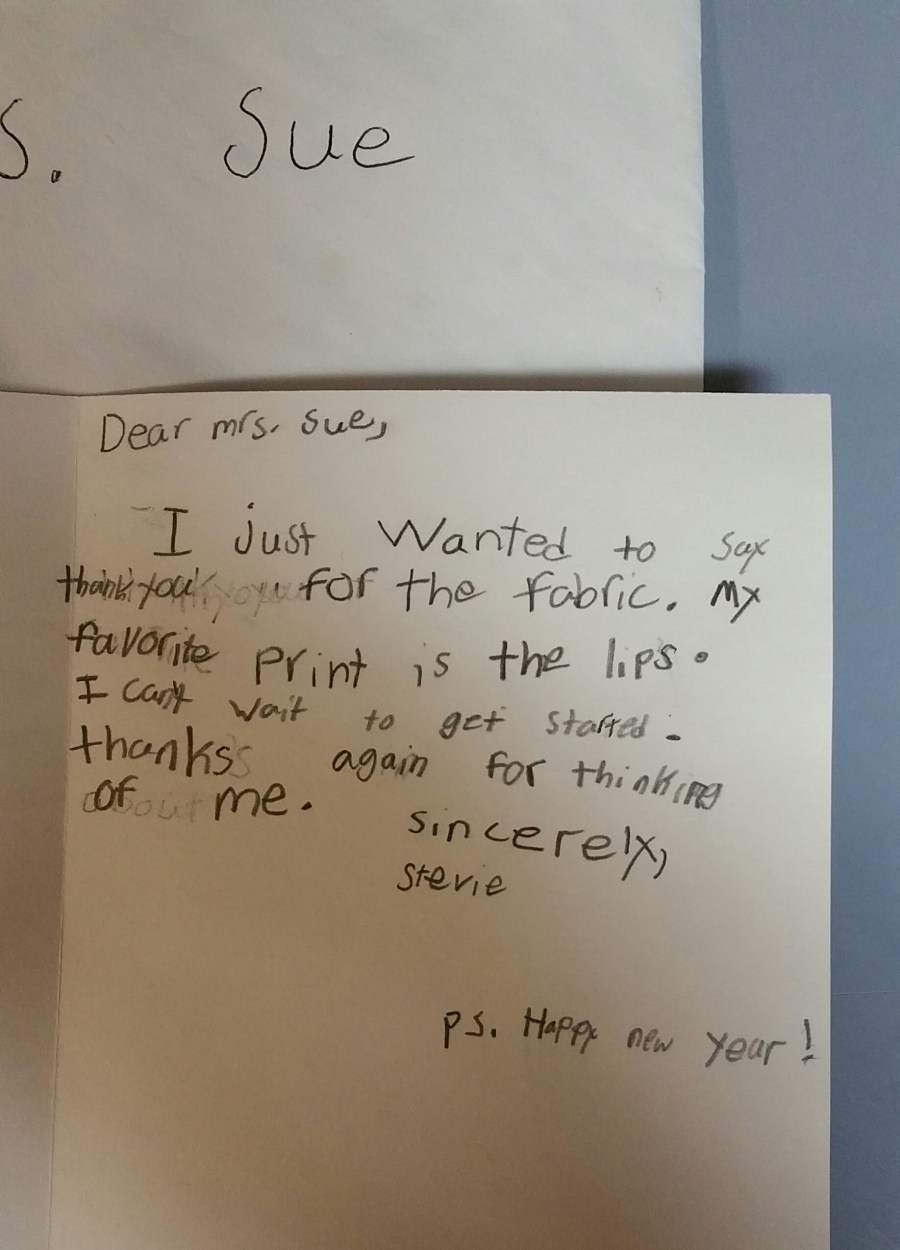 S. Sue
Dear mrs. Sue,
I just Wanted to say
thank you for the fabric. My
favorite print is the lips.
I can't wait to get started.
thanks again for thinking
of me.
sincerely,
stevie
ps. Happy new year!